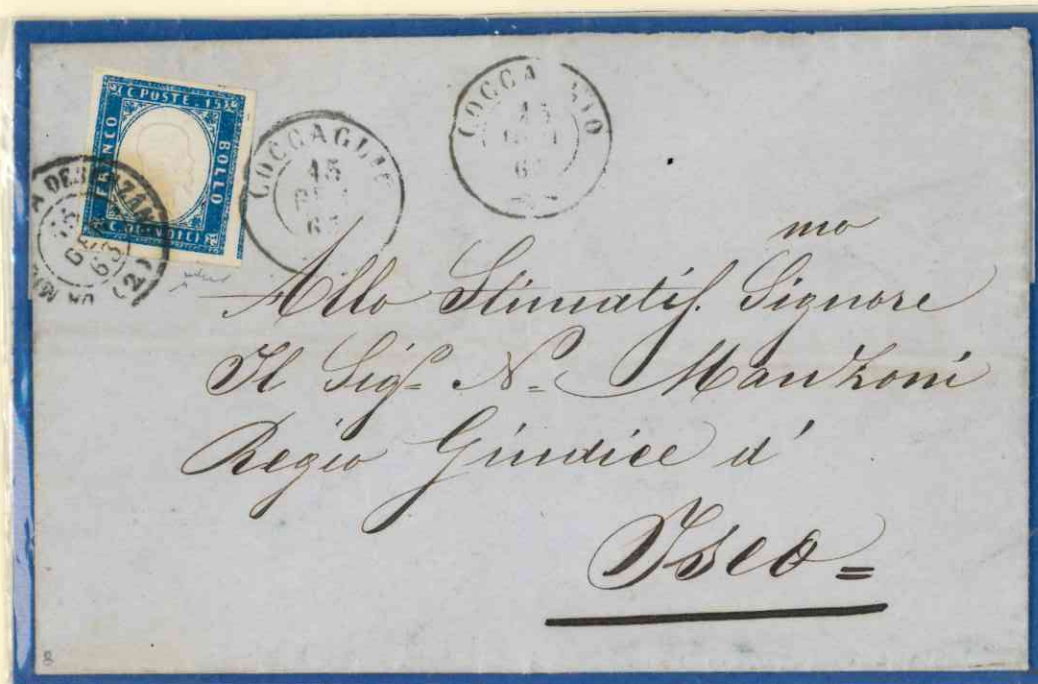 C. POSTE. 15
FRANCO
BOLLO
C. QUINDICI
COCCAGLIO
15
GEN
63
COCCAGLIO
15
GEN
63
DESENZANO
15
GEN
63
(2)
mo
Allo Stimatiss. Signore
Il Sigr. N. Manzoni
Regio Giudice d'
Iseo =
8